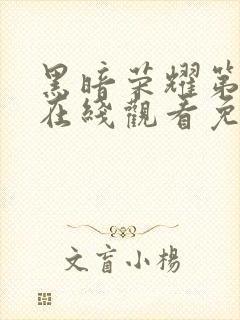 黑暗荣耀第
在线觀看免
文盲小楊